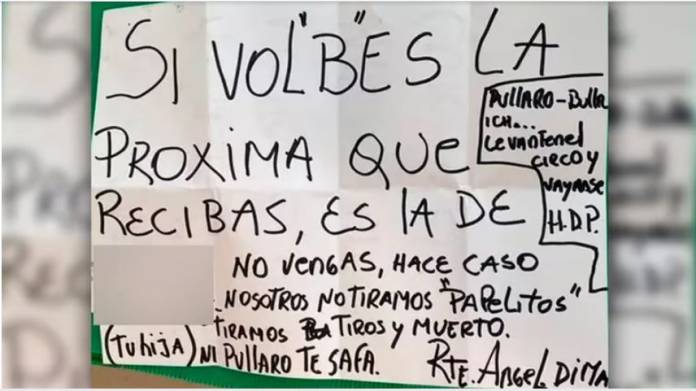 SI VOL"B"ES LA
PROXIMA QUE
RECIBAS, ES LA DE
PULLARO-BULLR
ICH...
LEVANTEN EL
CIRCO Y
VAYANSE
H.D.P.
NO VENGAS, HACE CASO
NOSOTROS NO TIRAMOS "PAPELITOS"
TIRAMOS TIROS y MUERTO.
(TU HIJA) NI PULLARO TE SAFA.
RTE. ANGEL DIMA